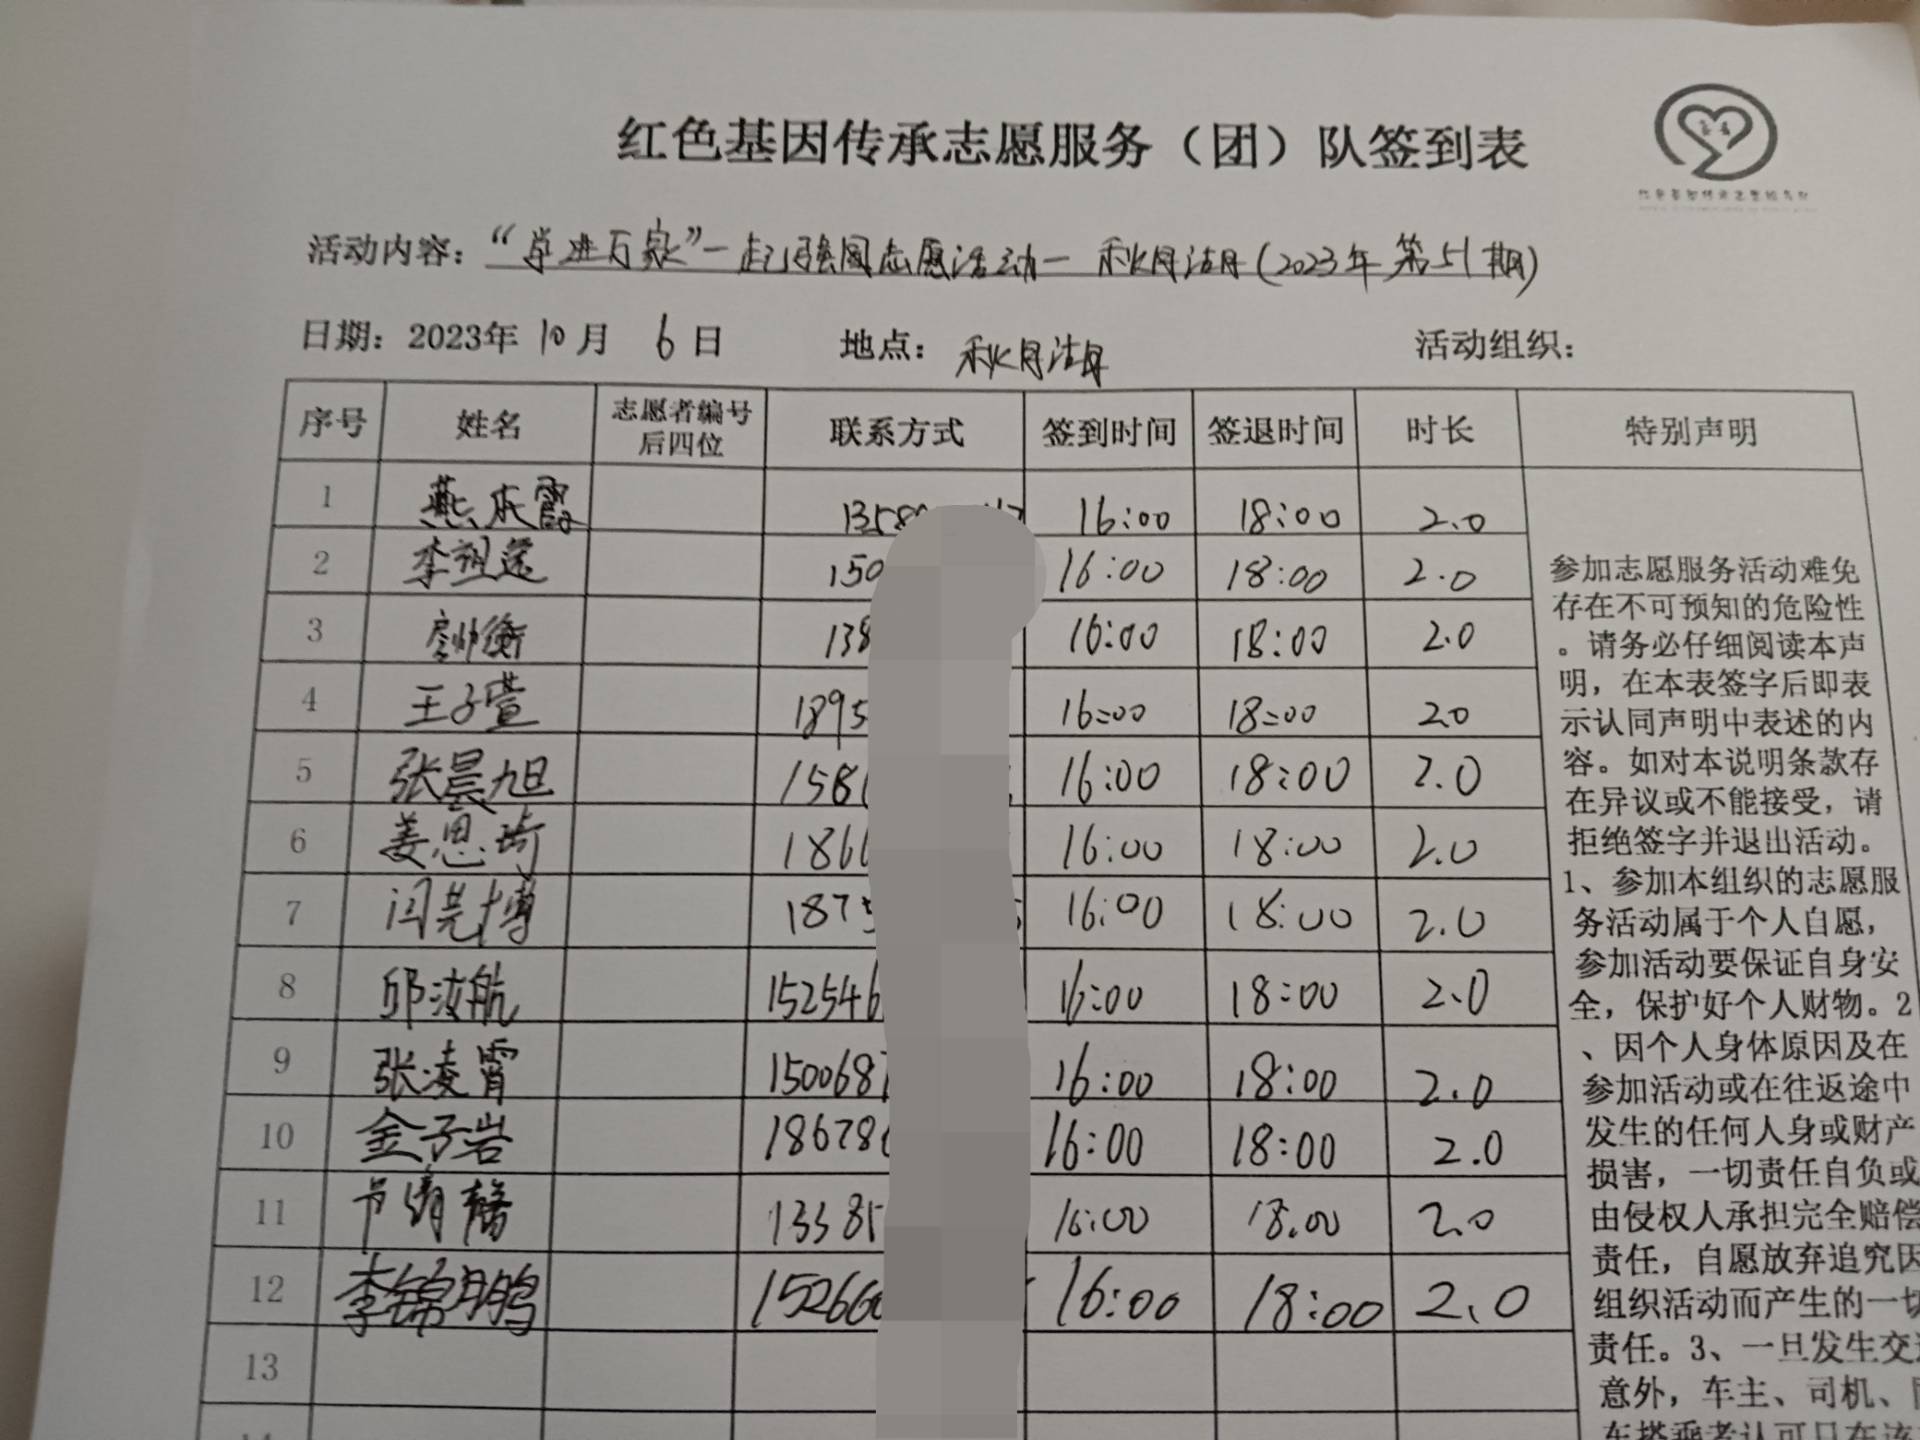 红色基因传承志愿服务（团）队签到表
活动内容：“学进万家”一起强国志愿活动—秋月湖(2023年第51期)
日期：2023年10月6日 地点：秋月湖 活动组织：
序号 姓名 志愿者编号后四位 联系方式 签到时间 签退时间 时长 特别声明
1 燕庆霞 1358 16:00 18:00 2.0
2 李祖 150 16:00 18:00 2.0
3 衡 138 16:00 18:00 2.0
4 王子萱 1895 16:00 18:00 20
5 张晨旭 158 16:00 18:00 2.0
6 姜思琦 186 16:00 18:00 2.0
7 闫芸博 1875 16:00 18:00 2.0
8 邱汝航 152546 16:00 18:00 2.0
9 张凌霄 150068 16:00 18:00 2.0
10 金子岩 18678 16:00 18:00 2.0
11 13385 16:00 18.00 2.0
12 李锦鹏 15266 16:00 18:00 2.0
13
参加志愿服务活动难免
存在不可预知的危险性
。请务必仔细阅读本声
明，在本表签字后即表
示认同声明中表述的内
容。如对本说明条款存
在异议或不能接受，请
拒绝签字并退出活动。
1、参加本组织的志愿服
务活动属于个人自愿，
参加活动要保证自身安
全，保护好个人财物。2
、因个人身体原因及在
参加活动或在往返途中
发生的任何人身或财产
损害，一切责任自负或
由侵权人承担完全赔偿
责任，自愿放弃追究因
组织活动而产生的一切
责任。3、一旦发生交
意外，车主、司机、